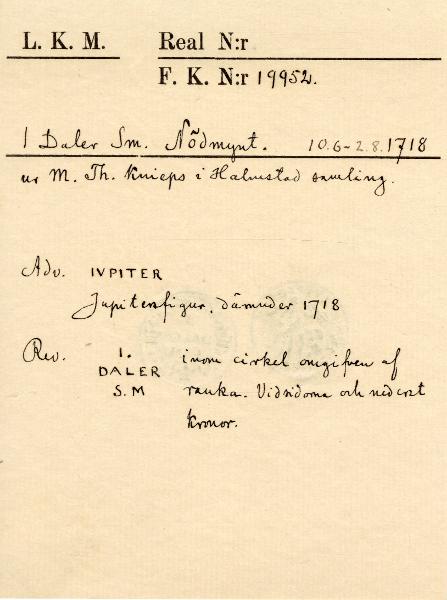 L. K. M. Real N:r
F. K. N:r 19952.
1 Daler Sm. Nödmynt. 10.6-2.8.1718
ur M. Th. Knieps i Halmstad samling.
Adv. IVPITER
Jupitersfigur, därunder 1718
Rev. 1. inom cirkel omgifven af
DALER ranka. Vid sidorna och nederst
S.M kronor.